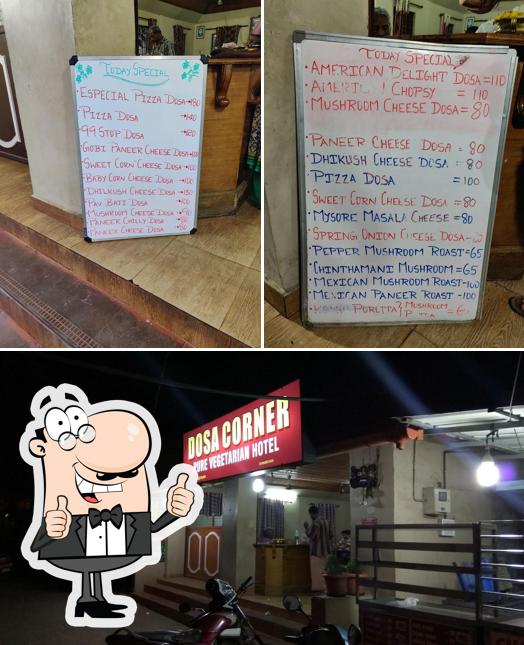 TODAY SPECIAL
ESPECIAL PIZZA DOSA→180
PIZZA DOSA →140
99 STOP DOSA →120
GOBI PANEER CHEESE DOSA
SWEET CORN CHEESE DOSA→100
BABY CORN CHEESE DOSA →100
DHILKUSH CHEESE DOSA →130
PAV BAJI DOSA →100
MUSHROOM CHEESE DOSA
PANEER CHILLY DOSA
PANEER CHEESE DOSA
TODAY SPECIAL
AMERICAN DELIGHT DOSA=110
CHOPSY = 110
MUSHROOM CHEESE DOSA=80
PANEER CHEESE DOSA = 80
DHIKUSH CHEESE DOSA = 80
PIZZA DOSA =100
SWEET CORN CHEESE DOSA =80
MYSORE MASALA CHEESE =80
SPRING ONION CHEESE DOSA
PEPPER MUSHROOM ROAST=65
CHINTHAMANI MUSHROOM =65
MEXICAN MUSHROOM ROAST-100
MEXICAN PANEER ROAST -100
POROTTA MUSHROOM
DOSA CORNER
PURE VEGETARIAN HOTEL